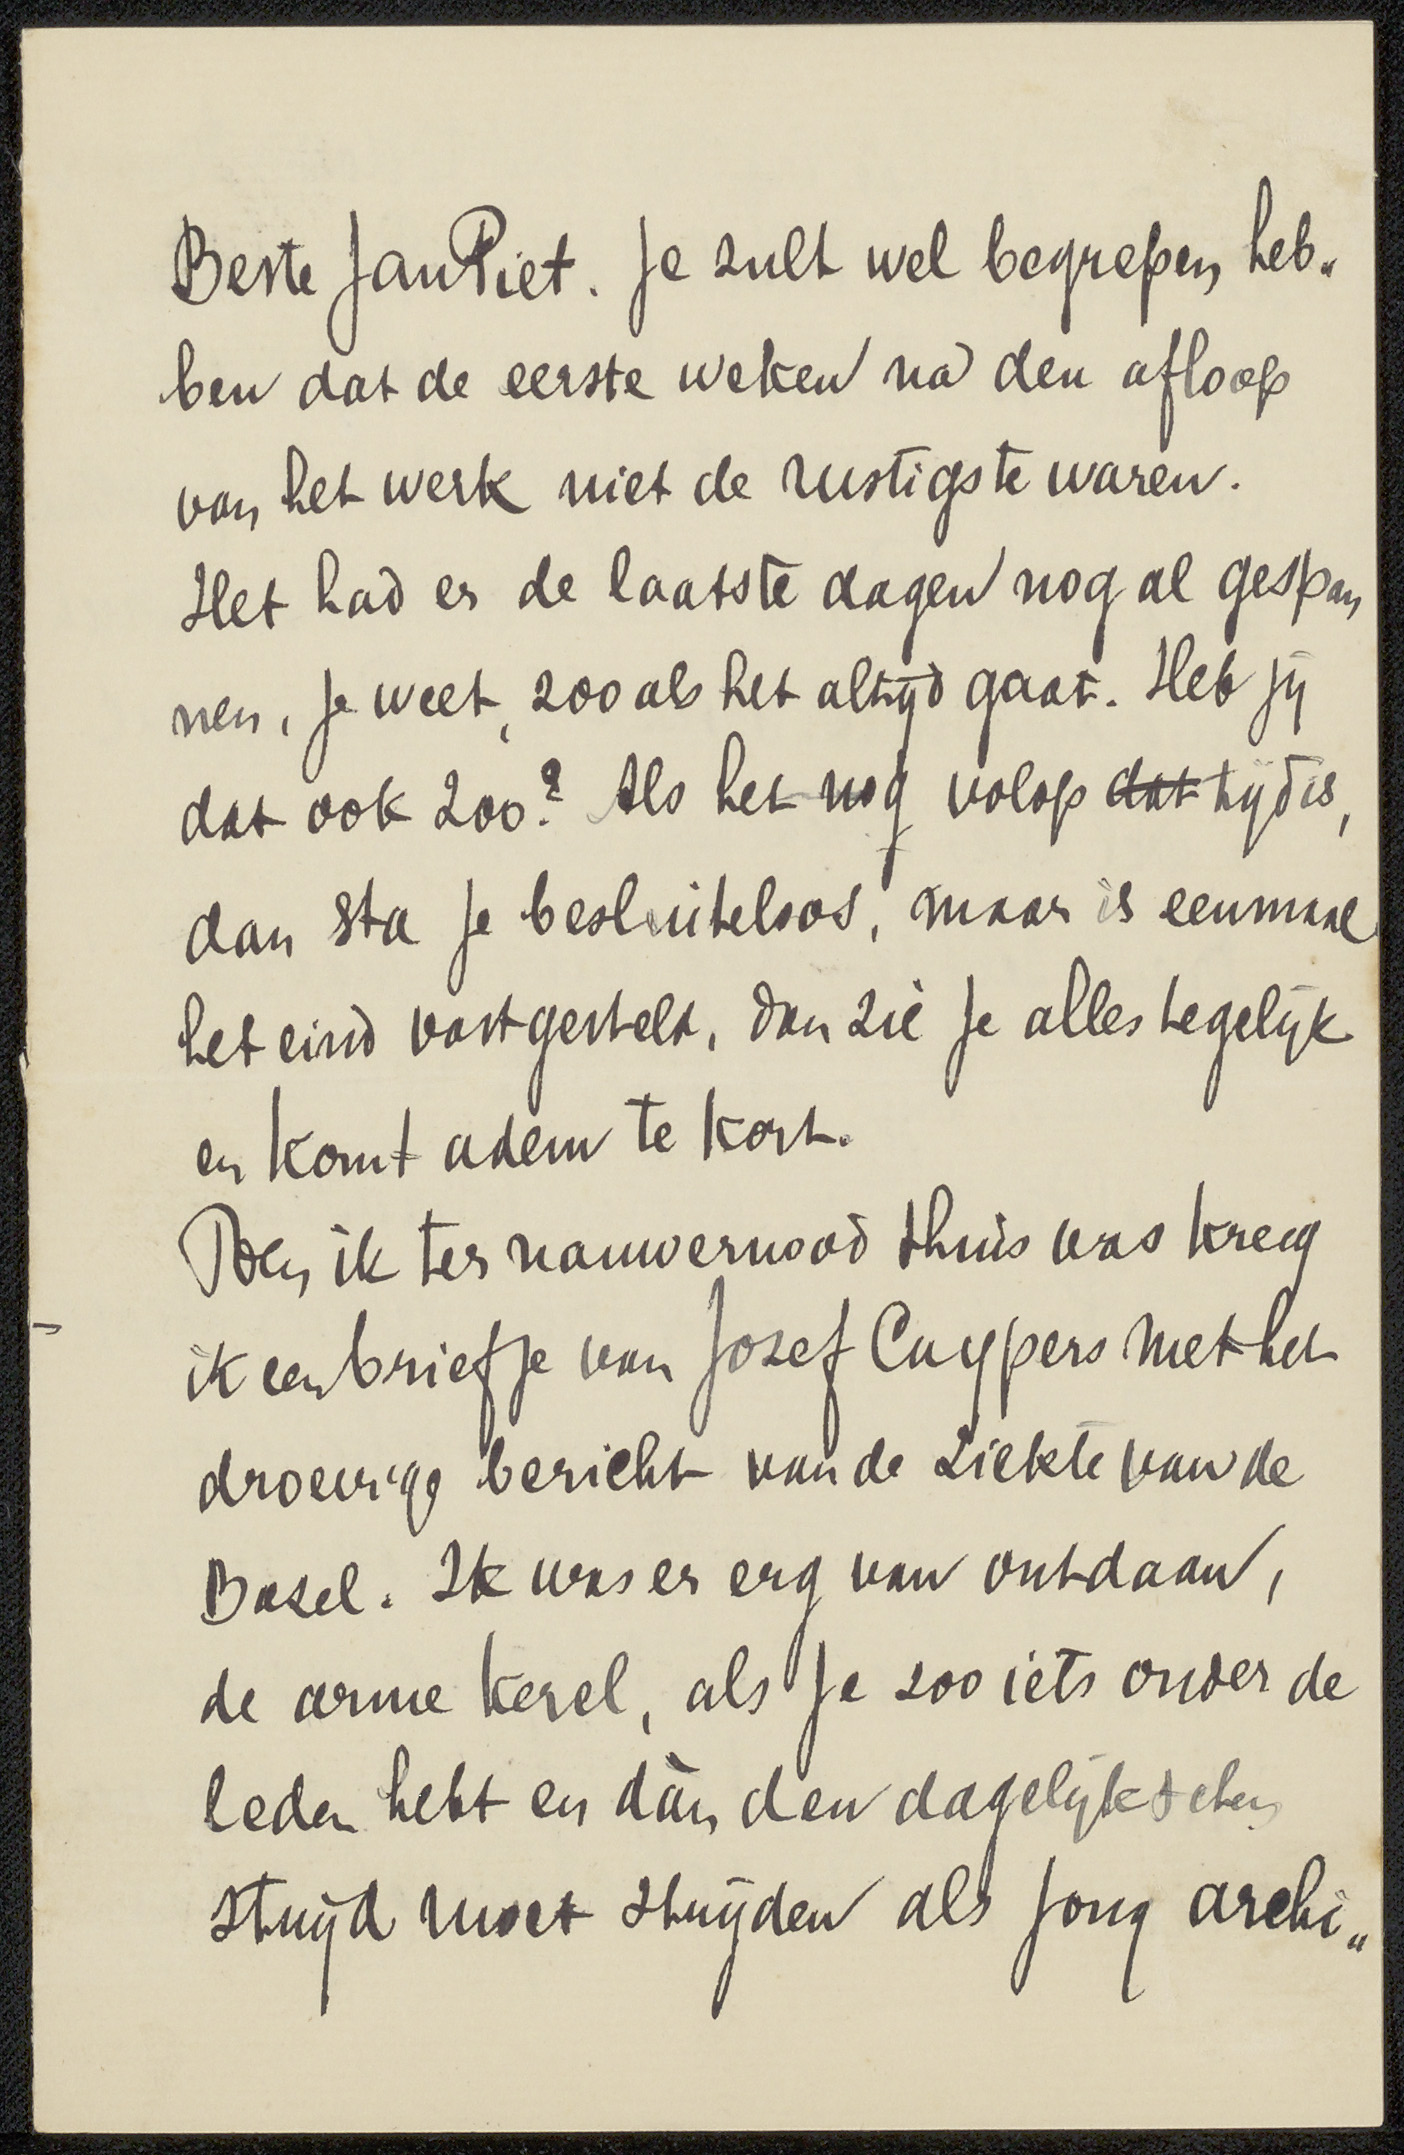 Beste Jan Piet. Je zult wel begrepen heb„
ben dat de eerste weken na den afloop
van het werk niet de rustigste waren.
Het had er de laatste dagen nog al gespan
nen, je weet, zooals het altijd gaat. Heb jij
dat ook zoo? Als het nog volop dat tijd is,
dan sta je besluiteloos, maar is eenmaal
het eind vastgesteld, dan zie je alles tegelijk
en komt adem te kort.
Toen ik ter nauwernood thuis was kreeg
ik een briefje van Josef Cuypers met het
droevige bericht van de ziekte van de
Bazel. Ik was er erg van ontdaan,
de arme kerel, als je zoo iets onder de
leden hebt en dàn den dagelijkschen
strijd moet strijden als jong archi„